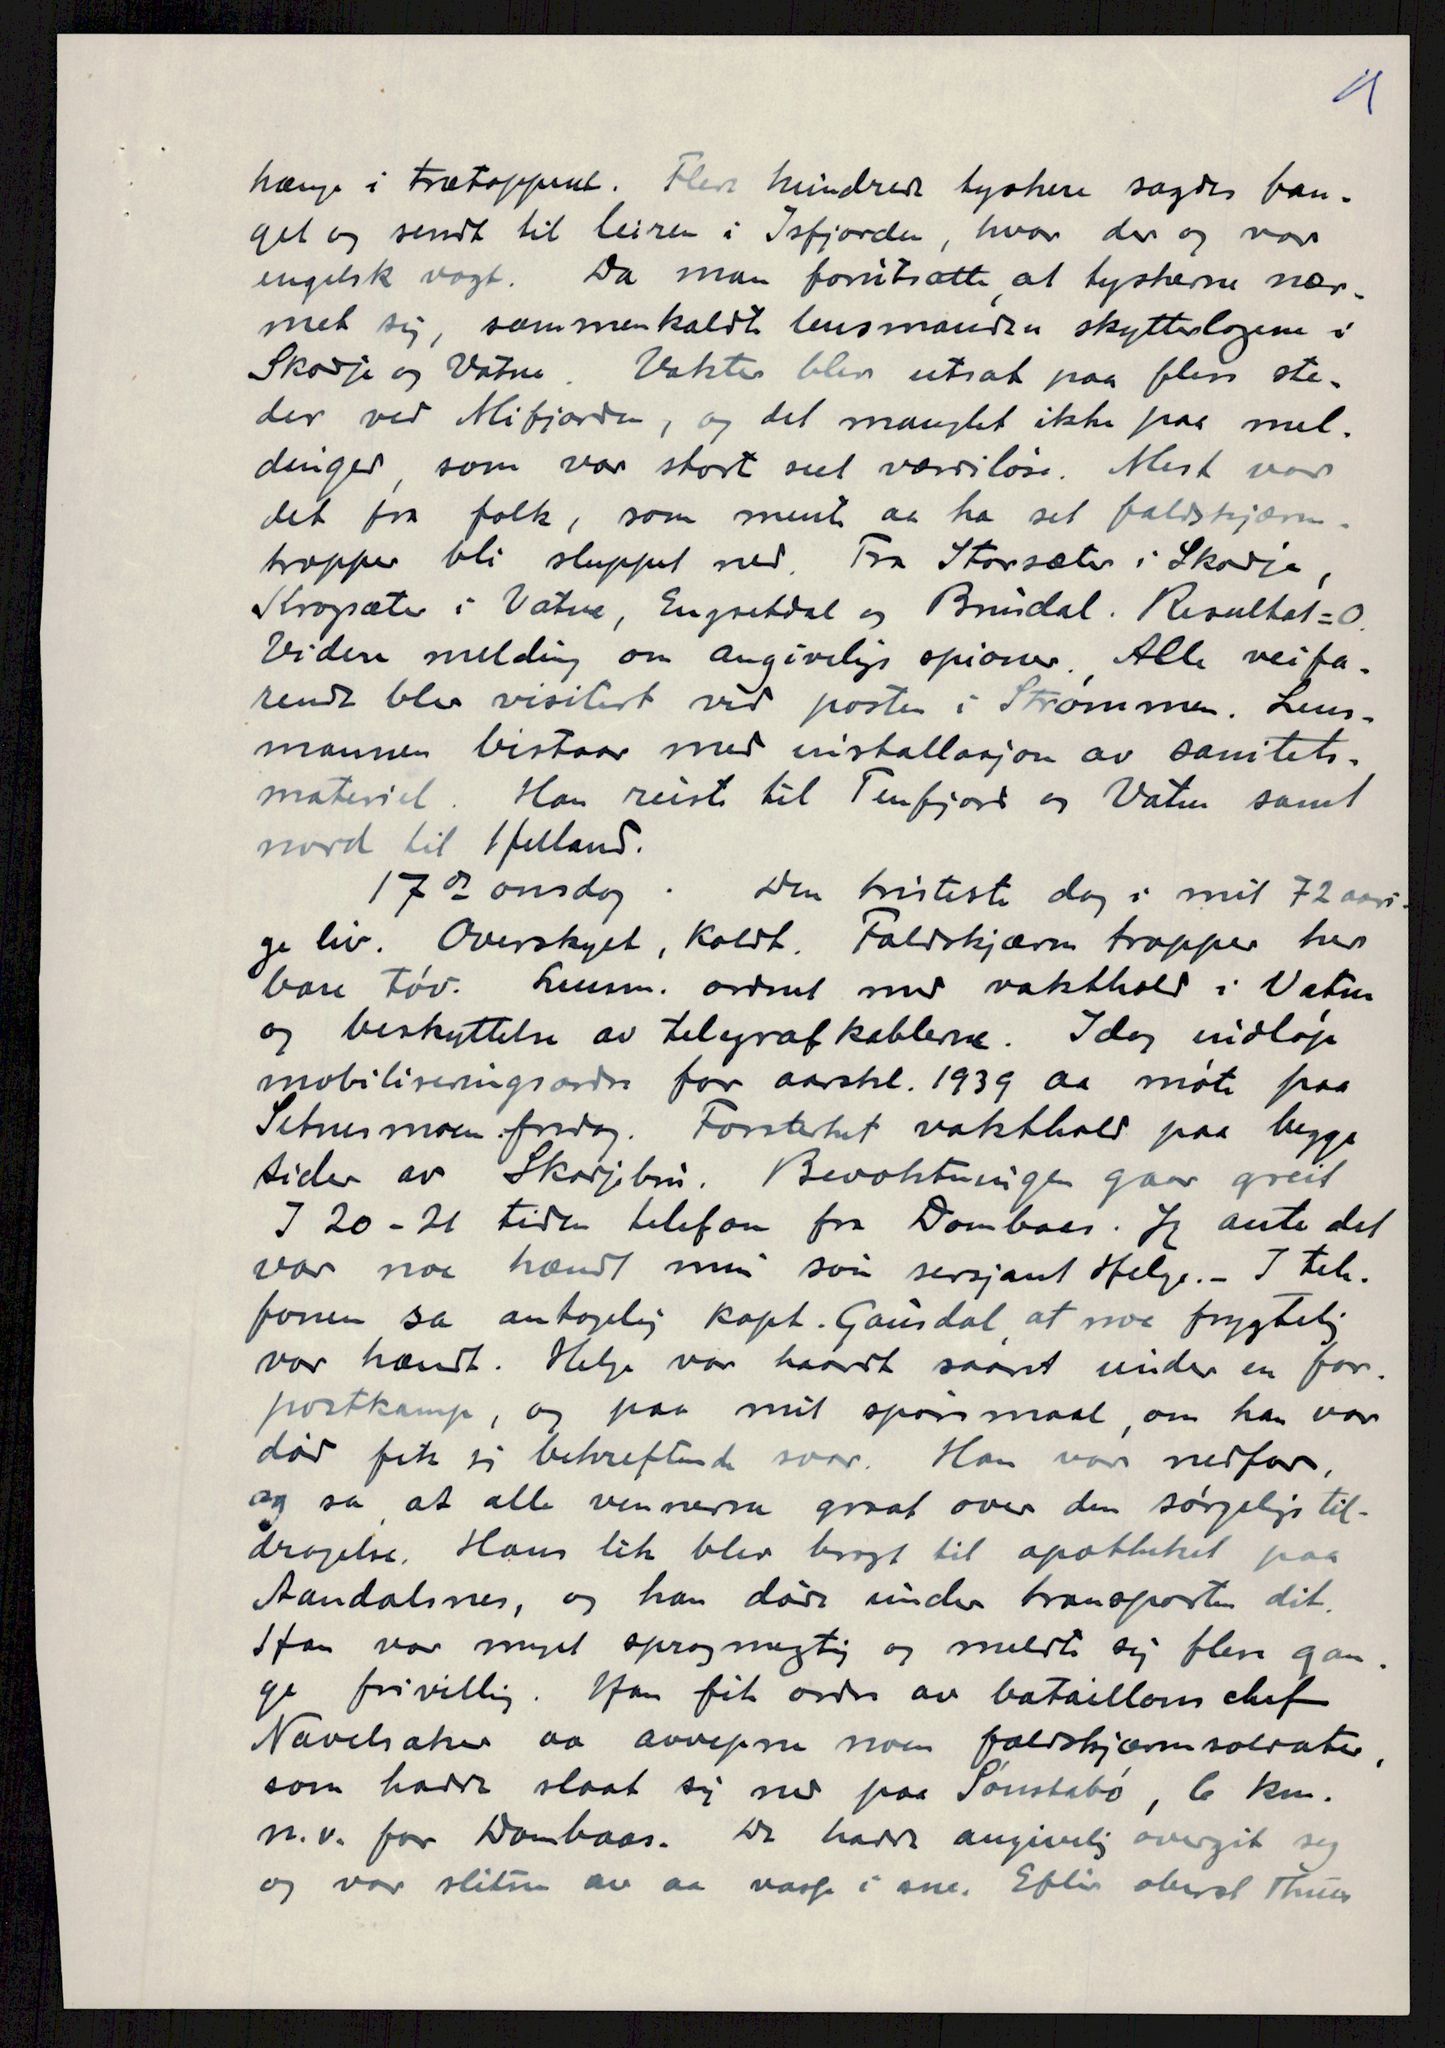 4
hænge i trætoppene. Flere hundrede tyskere sagdes fan-
get og sendt til leiren i Isfjorden, hvor der og var
engelsk vagt. Da man forutsatte, at tyskerne nær-
met sig, sammenkaldte lensmanden skytterlagene i
Skodje og Vatne. Vakter blev utsat paa flere ste-
der ved Mifjorden, og det manglet ikke paa mel-
dinger, som var stort set værdiløse. Mest var
det fra folk, som mente aa ha set faldskjærm-
tropper bli sluppet ned. Fra Storsæter i Skodje,
Krogsæter i Vatne, Engsetdal og Brusdal. Resultat = 0.
Videre melding om angivelige spioner. Alle veifa-
rende blev visitert ved posten i Strømmen. Lens-
mannen bistaar med installasjon av sanitets-
materiel. Han reiste til Tenfjord og Vatne samt
nord til Helland.
17de onsdag. Den tristeste dag i mit 72 aari-
ge liv. Overskyet, koldt. Faldskjærm tropper her
bare tøv. Lensm. ordnet med vakthold i Vatne
og beskyttelse av telegrafkablerne. Idag indløp
mobiliseringsordre for aarskl. 1939 aa møte paa
Setnesmoen fredag. Forsterket vakthold paa begge
sider av Skodjebru. Bevoktningen gaar greit
I 20-21 tiden telefon fra Dombaas. Jeg ante det
var noe hændt min søn sersjant Helge. - I tele-
fonen sa antagelig kapt. Gausdal, at noe frygtelig
var hændt. Helge var haardt saaret under en for-
postkamp, og paa mit spørsmaal, om han var
død fik jeg bekreftende svar. Han var nedfor,
og sa at alle vennerne graat over den sørgelige til-
dragelse. Hans lik blev bragt til apotheket paa
Aandalsnes, og han døde under transporten dit.
Han var meget sprogmegtig og meldte sig flere gan-
ge frivillig. Han fik ordre av bataillons chef
Navelsaker aa avvepne noen faldskjærmsoldater,
som hadde slaat sig ned paa Sønstebø, 6 km.
n.v. for Dombaas. De hadde angivelig overgit seg
og var slitne av aa vasse i sne. Efter oberst Thues